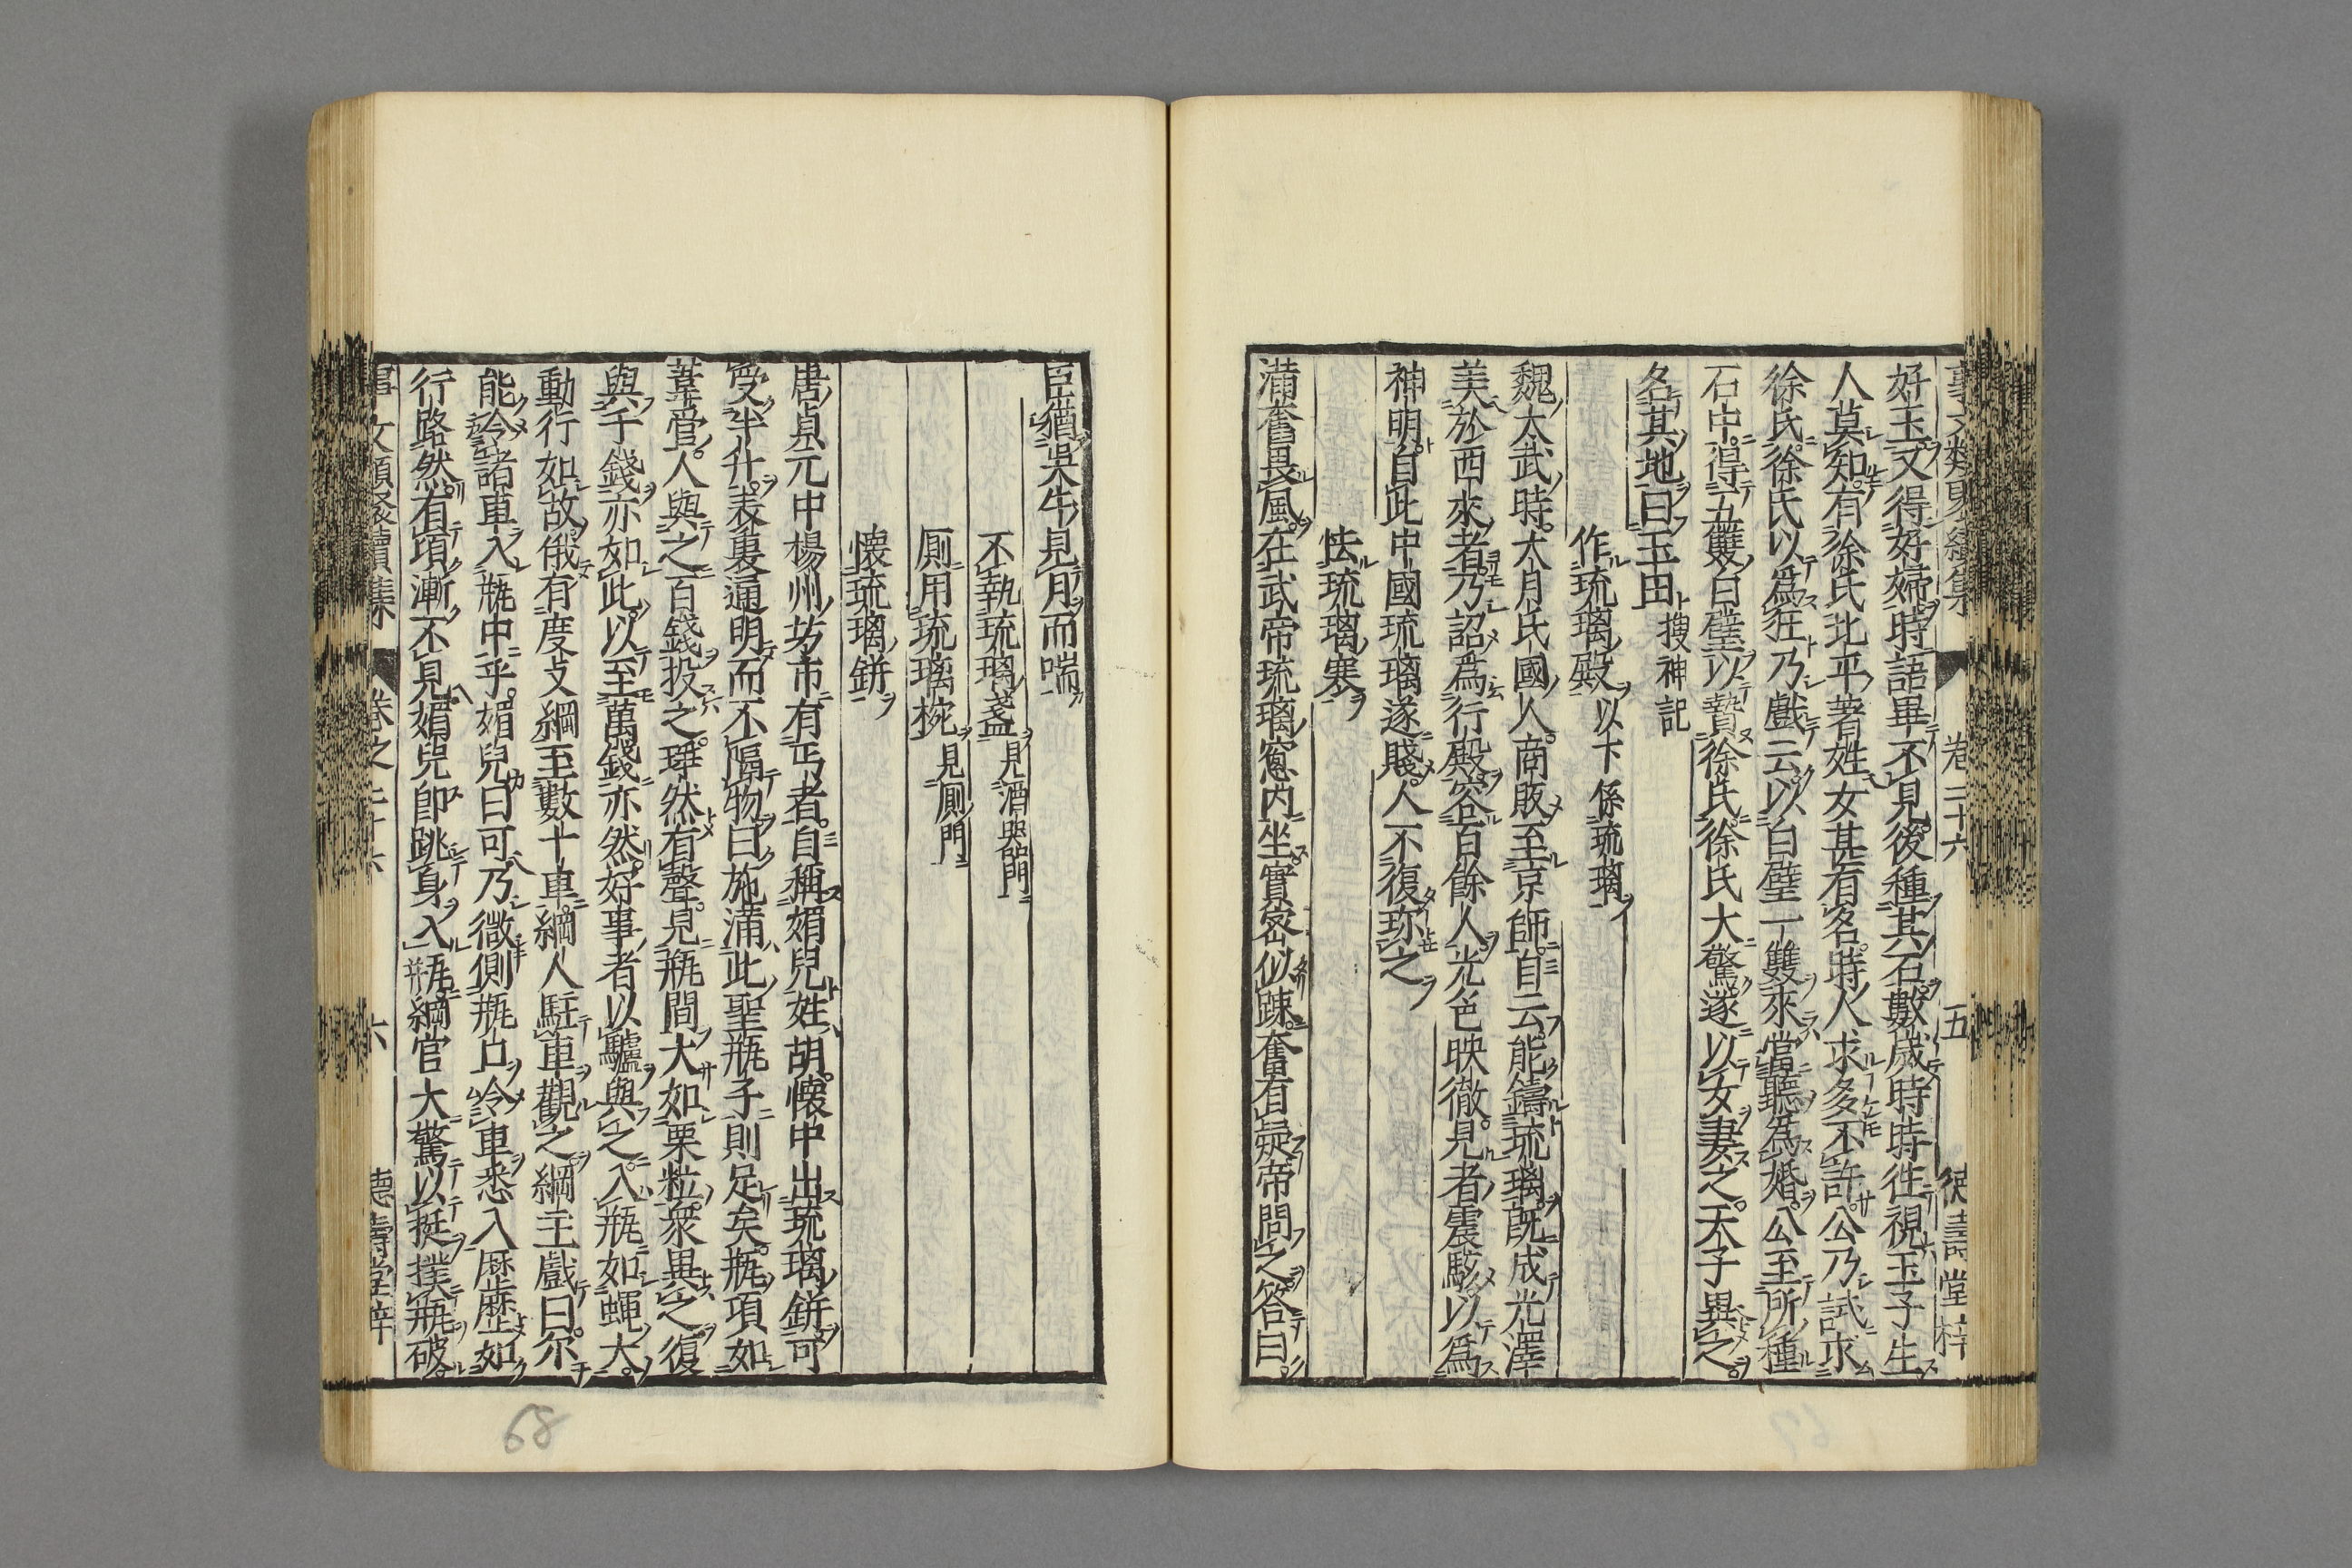 好玉又得好婦時語畢不見後種其石數歲時時往視玉子生
人莫知有徐氏北平著姓女甚有名時人求多不許公乃試求
徐氏徐氏以爲狂乃戲云以白璧一雙來當聽爲婚公至所種
石中得五雙白璧以贄徐氏徐氏大驚遂以女妻之天子異之
名其地曰玉田搜神記
作琉璃殿以下係琉璃
魏太武時大月氏國人商販至京師自云能鑄琉璃既成光澤
美於西來者乃詔爲行殿容百餘人光色映徹見者震駭以爲
神明自此中國琉璃遂賤人不復珎之
怯琉璃寒
滿奮畏風在武帝琉璃窻内坐實密似踈奮有疑帝問之答曰
臣猶吳牛見月而喘
不執琉璃盞見酒器門
厠用琉璃椀見厠門
懷琉璃餅
唐貞元中楊州坊市有丐者自稱媚兒姓胡懷中出琉璃餅可
受半升表裏通明而不隔物曰施滿此聖瓶子則足矣瓶項如
葦管人與之百錢投之琤然有聲見瓶間大如栗粒衆異之復
與千錢亦如此以至萬錢亦然好事者以驢與之入瓶如蠅大
動行如故俄有度支綱至數十車綱人駐車觀之綱主戲曰尔
能令諸車入瓶中乎媚兒曰可乃微側瓶口令車悉入歷歷如
行路然有頃漸不見媚兒即跳身入瓶綱官大驚以挺撲瓶破
卷之二十六
六